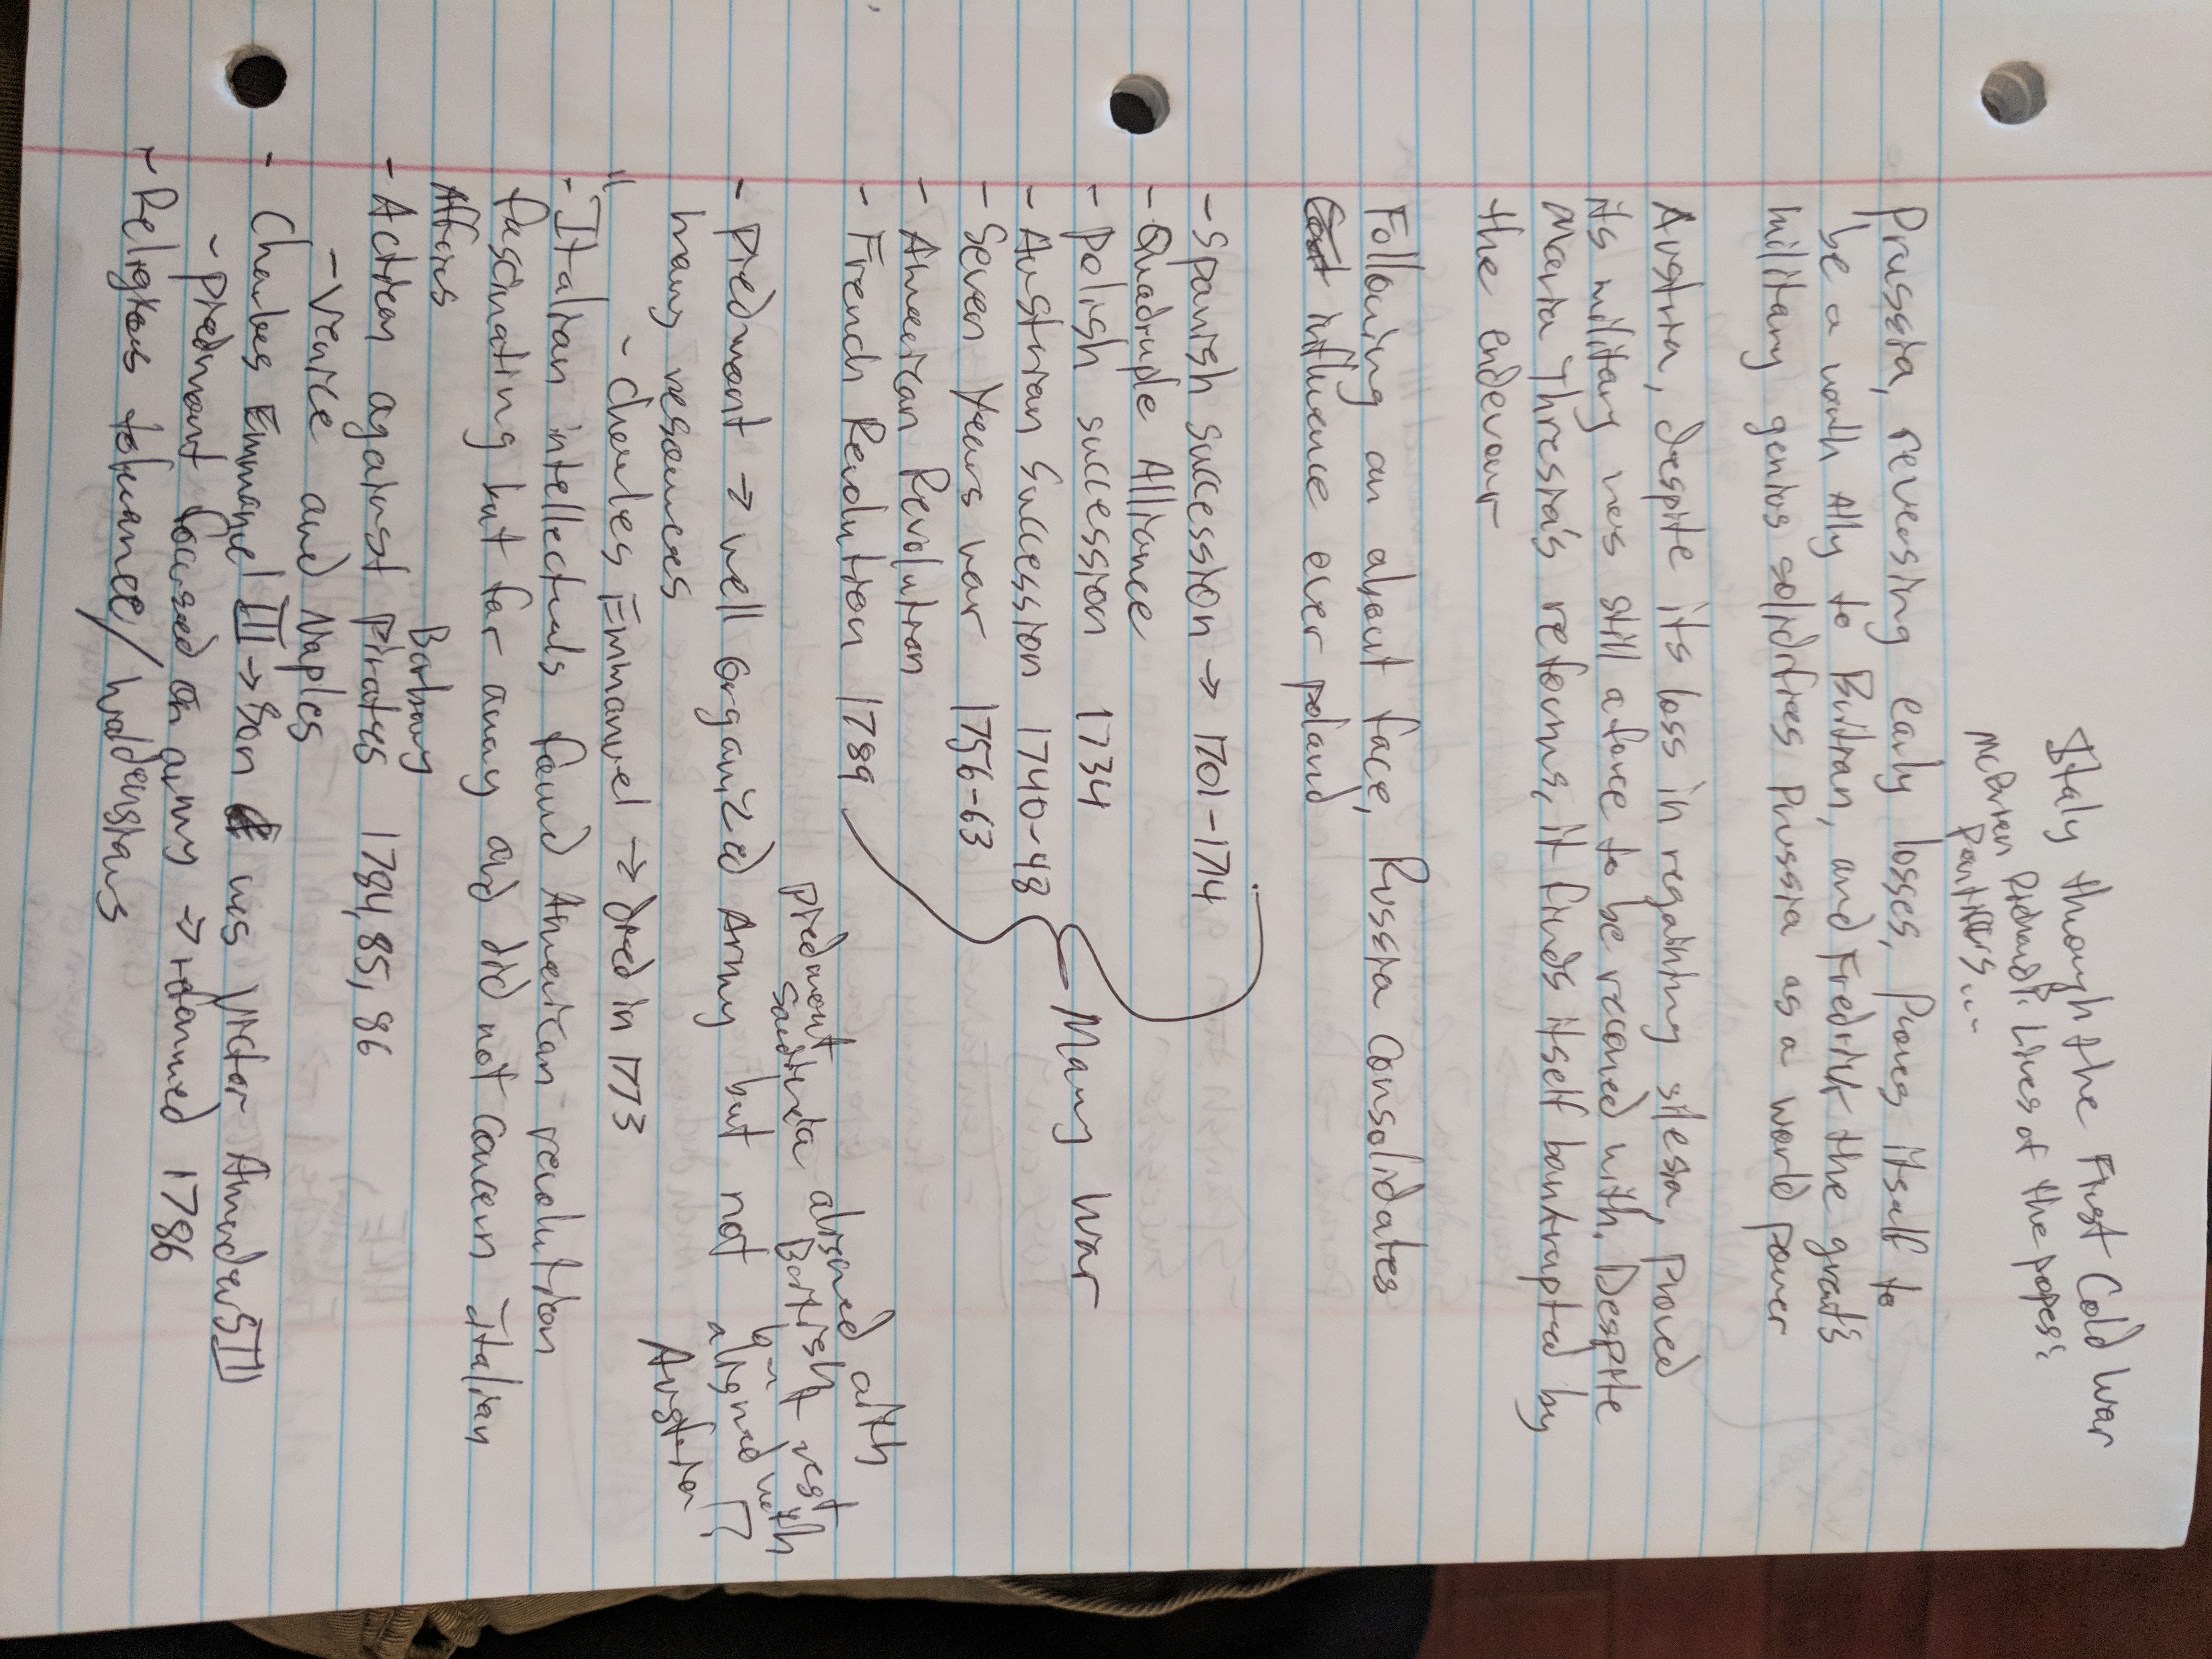 Italy though the First Cold War
McBrien Richard P. Lives of the popes:
Pontiffs...
Prussia, reversing early losses, Proves itself to
be a worth Ally to Britian, and Fredrick the great's
military genios solidifies Prussia as a world power
Austria, despite its loss in regaining silesia, Proved
its military was still a force to be reconed with. Despite
Maria Thresia's reforms, it finds itself bankrupted by
the endevour
Following an about face, Russia Consolidates
influence over poland
- Spanish Succession → 1701-1714
- Quadruple Alliance
- Polish succession 1734
- Austrian Succession 1740-48
Many War
- Seven Years war 1756-63
- American Revolution
- French Revolution 1789
Piedmont aligned with
Sardinia British west
- Piedmont → well organized Army but not aligned with
many resources Austria
~ Charles Emmanuel → died in 1773
- "Italian intellectuals found American revolution
fascinating but far away and did not concern italian
Affairs
Barbary
- Action against Pirates 1784, 85, 86
- Venice and Naples
- Charles Emmanuel III → Son was Victor Amedeus III
~ Piedmont focused on army → reformed 1786
~ Religious tolerance/waldensians